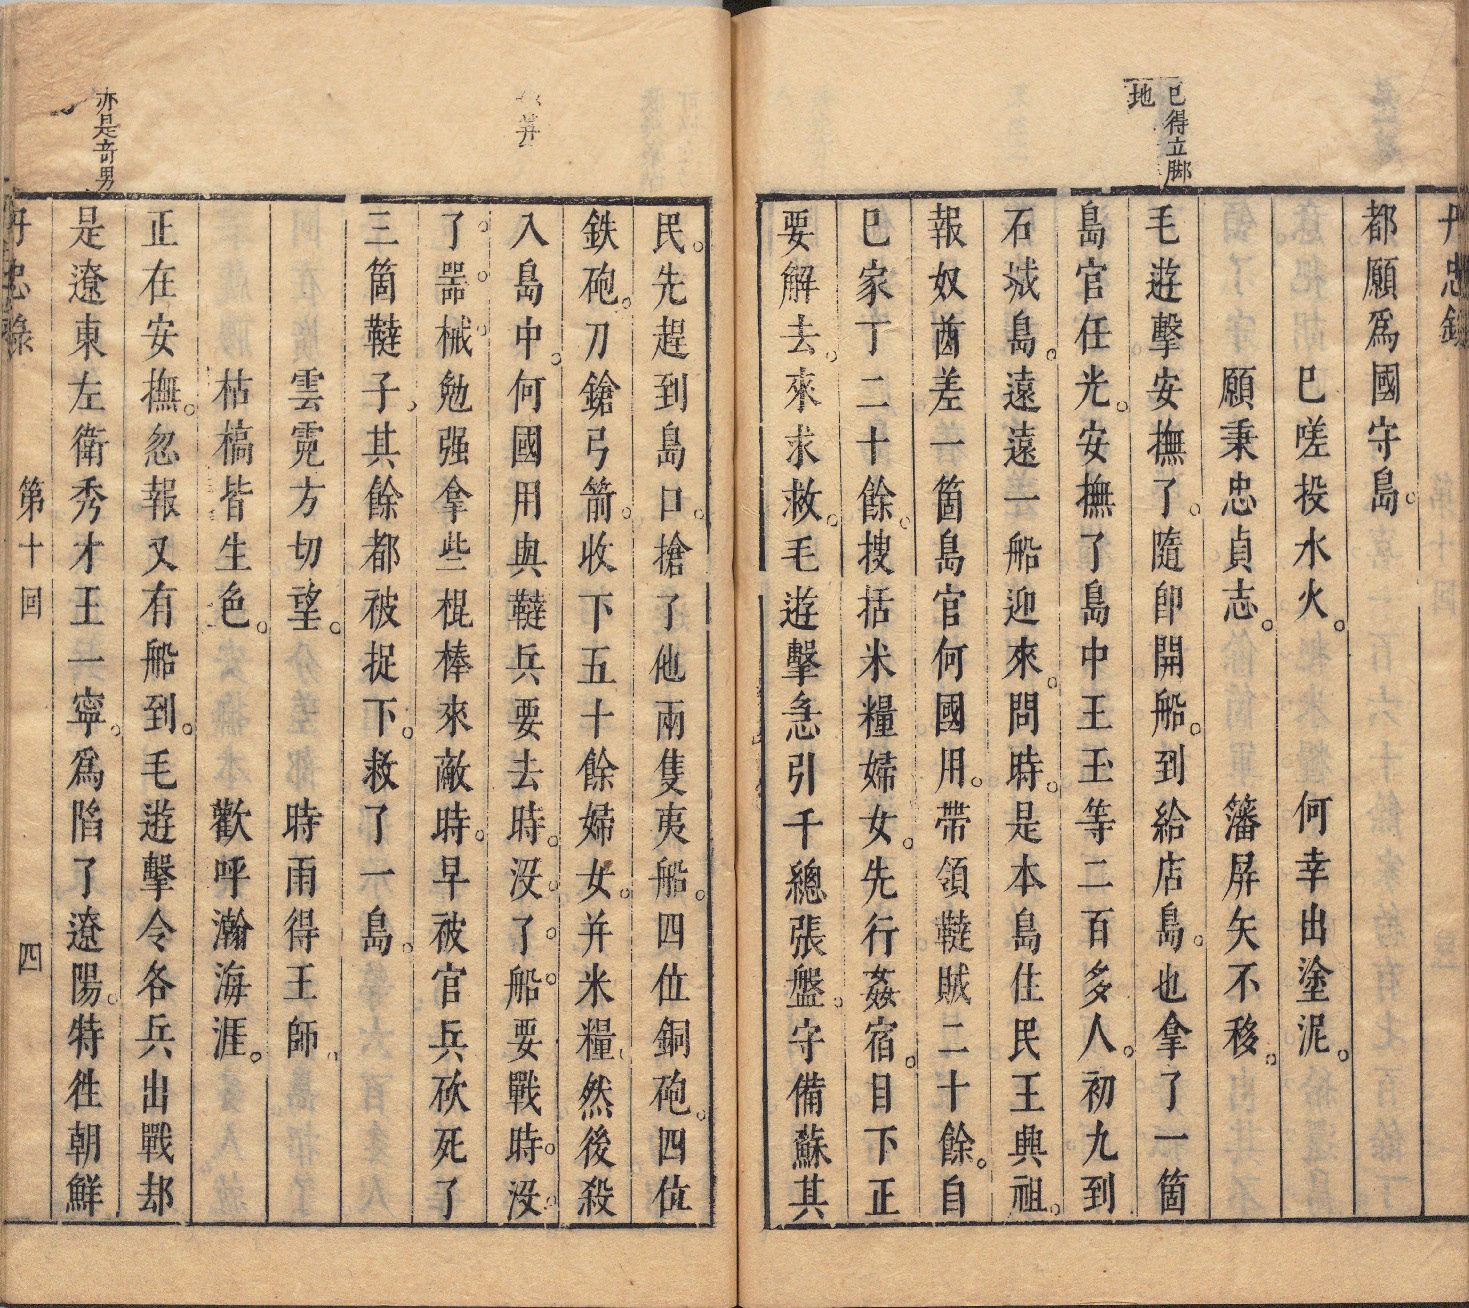 已得立脚
地
丹忠錄
都願爲國守島。
巳嗟投水火。何幸出塗泥。
願秉忠貞志。藩屏矢不移。
毛遊擊安撫了。隨卽開船。到給店島。也拿了一箇
島官任光。安撫了島中王玉等二百多人。初九到
石城島。遠遠一船迎來。問時。是本島住民王興祖。
報奴酋差一箇島官何國用。帶領韃賊二十餘。自
巳家丁二十餘。搜括米糧婦女。先行姦宿。目下正
要解去。來求救。毛遊擊急引千總張盤。守備蘇其
民。先趕到島口。搶了他兩隻夷船。四位銅砲。四位
鉄砲。刀鎗弓箭。收下五十餘婦女。并米糧、然後殺
入島中。何國用與韃兵要去時。沒了船。要戰時。沒
了。器。械。勉强拿些棍棒來敵時。早被官兵砍死了
三箇韃子、其餘都被捉下。救了一島。
雲霓方切望。時雨得王師、
枯槁皆生色。歡呼瀚海涯。
正在安撫。忽報又有船到。毛遊擊令各兵出戰却
是遼東左衛秀才王一寧。爲陷了遼陽。特徃朝鮮
亦是奇男
丹忠錄 第十回 四